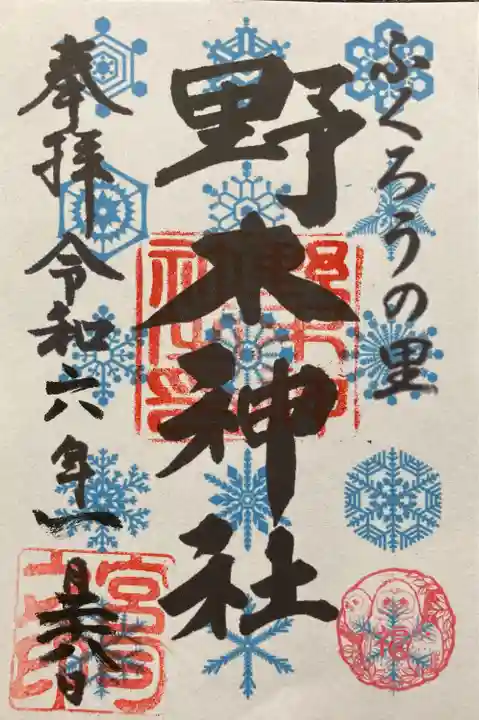 ふくろうの里
野木神社
奉拝 令和六年一月廿八日
宮司
之印
福